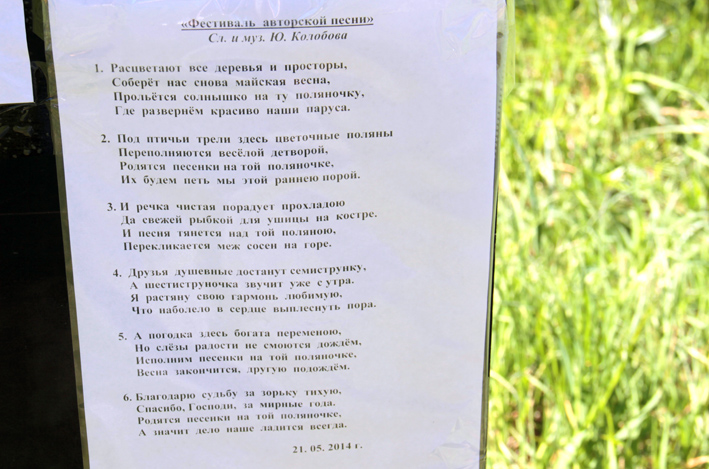 «Фестиваль авторской песни»
Сл. и муз. Ю. Колобова
1. Расцветают все деревья и просторы,
Соберёт нас снова майская весна,
Прольётся солнышко на ту поляночку,
Где развернём красиво наши паруса.
2. Под птичьи трели здесь цветочные поляны
Переполняются весёлой детворой,
Родятся песенки на той поляночке,
Их будем петь мы этой раннею порой.
3. И речка чистая порадует прохладою
Да свежей рыбкой для ушицы на костре.
И песня тянется над той поляною,
Перекликается меж сосен на горе.
4. Друзья душевные достанут семиструнку,
А шестиструночка звучит уже с утра.
Я растяну свою гармонь любимую,
Что наболело в сердце выплеснуть пора.
5. А погодка здесь богата переменою,
Но слёзы радости не смоются дождём,
Исполним песенки на той поляночке.
Весна закончится, другую подождём.
6. Благодарю судьбу за зорьку тихую,
Спасибо, Господи, за мирные года.
Родятся песенки на той поляночке,
А значит дело наше ладится всегда.
21. 05. 2014 г.